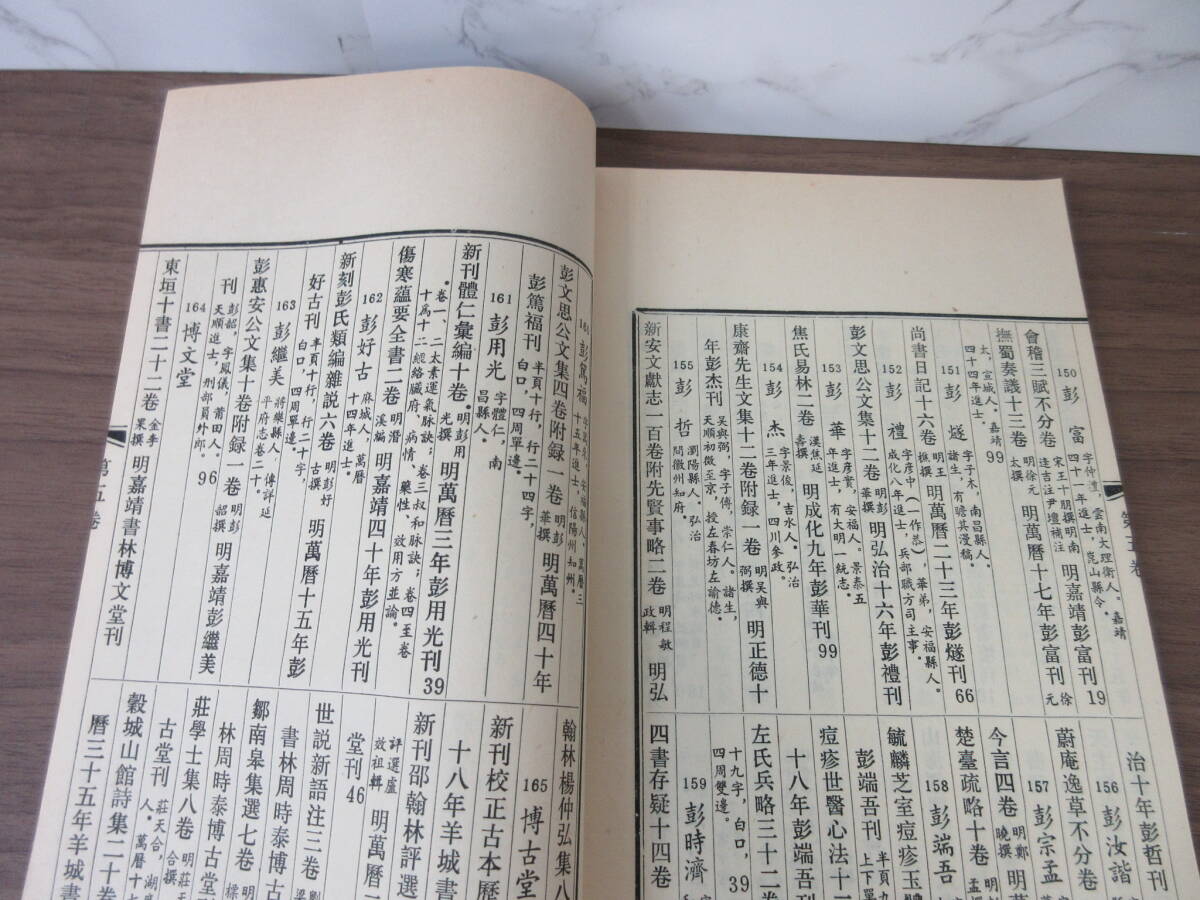 150 彭 富 字仲禮，雲南大理衛人。嘉靖
四十一年進士，崑山縣令。
會稽三賦不分卷 宋王十朋撰明南
逢吉注尹壇補注 明嘉靖彭富刊 19
撫蜀奏議十三卷 明徐元
太撰 明萬曆十七年彭富刊 元
太，宣城人。嘉靖
四十四年進士。 99
151 彭 燧 字子木，南昌縣人。
諸生，有瞻其漫稿。
尚書日記十六卷 明王
樵撰 明萬曆二十三年彭燧刊 66
152 彭 禮 字彦中（一作恭），華弟，安福縣人。
成化八年進士，兵部職方司主事。
彭文思公文集十二卷 明彭
華撰 明弘治十六年彭禮刊
153 彭 華 字彦實，安福人。景泰五
年進士，有大明一統志。
焦氏易林二卷 漢焦延
壽撰 明成化九年彭華刊 99
154 彭 杰 字景俊，吉水人。弘治
三年進士，四川參政。
康齋先生文集十二卷附錄一卷 明吴與
弼撰 明正德十
年彭杰刊 吴與弼，字子傳，崇仁人。諸生，
天順初徵至京，授左春坊左諭德。
155 彭 哲 瀏陽縣人。弘治
間徽州知府。
新安文獻志一百卷附先賢事略二卷 明程敏
政輯 明弘
治十年彭哲刊
156 彭汝諧
蔚庵逸草不分卷
157 彭宗孟
今言四卷 明鄭
曉撰
楚臺疏略十卷
158 彭端吾
毓麟芝室痘疹玉髓
彭端吾刊 半頁九
上下單
痘疹世醫心法十一
十八年彭端吾刊
左氏兵略三十二卷
十九字，白口，
四周雙邊。 39
159 彭時濟
四書存疑十四卷
160 彭篤福
十五年進士，信陽州知州。
彭文思公文集四卷附錄一卷 明彭
華撰 明萬曆四十年
彭篤福刊 半頁十行，行二十四字，
白口，四周單邊。
161 彭用光 字體仁，南
昌縣人。
新刊體仁彙編十卷 明彭用
光撰 明萬曆三年彭用光刊 39
卷一、二太素運氣脉訣；卷三叔和脉訣；卷四至卷
十爲十二經絡臟府、病情、藥性、效用方並論。
傷寒蘊要全書二卷 明潛
溪編 明嘉靖四十年彭用光刊
162 彭好古 麻城人，萬曆
十四年進士。
新刻彭氏類編雜説六卷 明彭好
古撰 明萬曆十五年彭
好古刊 半頁十行，行二十字，
白口，四周單邊。
163 彭繼美 將樂縣人，傳詳延
平府志卷二十。
彭惠安公文集十卷附錄一卷 明彭
韶撰 明嘉靖彭繼美
刊 彭韶，字鳳儀，莆田人。
天順進士，刑部員外郎。 96
164 博文堂
東垣十書二十二卷 金李
杲撰 明嘉靖書林博文堂刊
第五卷
翰林楊仲弘集八
165 博古堂
新刊校正古本歷
十八年羊城書
新刊邵翰林評選
評選盧
效祖輯 明萬曆二
堂刊 46
世説新語注三卷
書林周時泰博古
鄒南皋集選七卷 明
林周時泰博古堂
莊學士集八卷 明莊天
合撰
古堂刊 莊天合，湖
人。萬曆十七
穀城山館詩集二十卷
曆三十五年羊城書